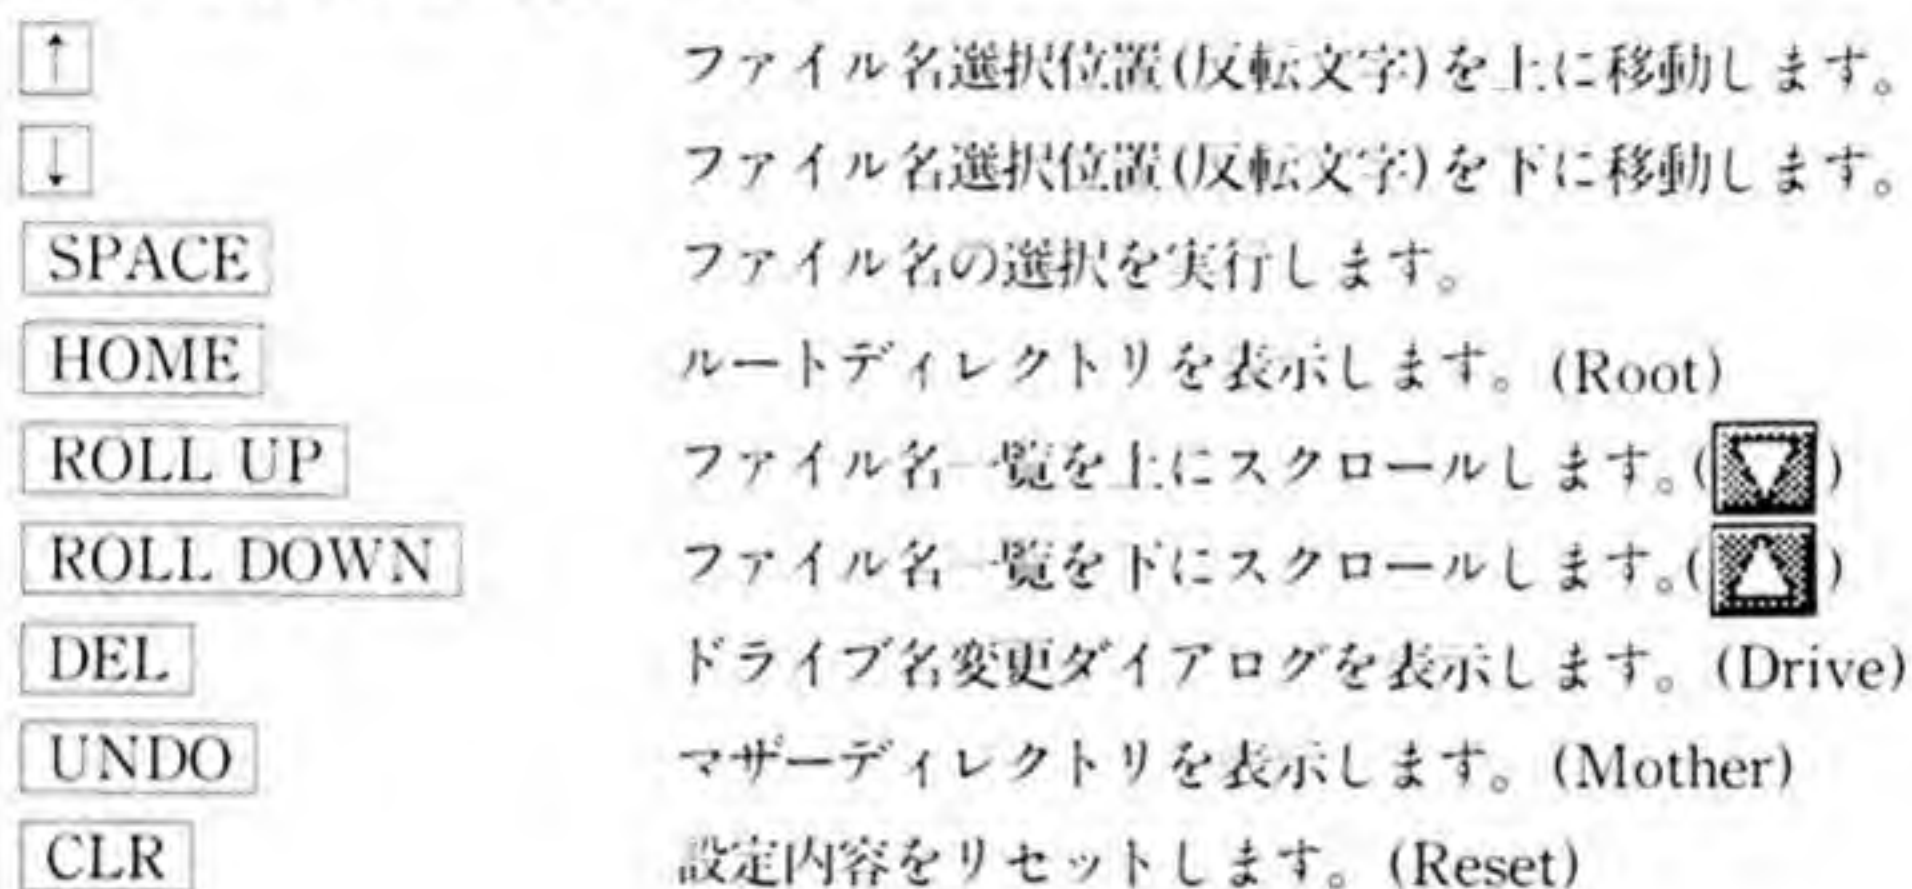 ↑ ファイル名選択位置(反転文字)を上に移動します。
↓ ファイル名選択位置(反転文字)を下に移動します。
SPACE ファイル名の選択を実行します。
HOME ルートディレクトリを表示します。(Root)
ROLL UP ファイル名一覧を上にスクロールします。(▽)
ROLL DOWN ファイル名一覧を下にスクロールします。(△)
DEL ドライブ名変更ダイアログを表示します。(Drive)
UNDO マザーディレクトリを表示します。(Mother)
CLR 設定内容をリセットします。(Reset)